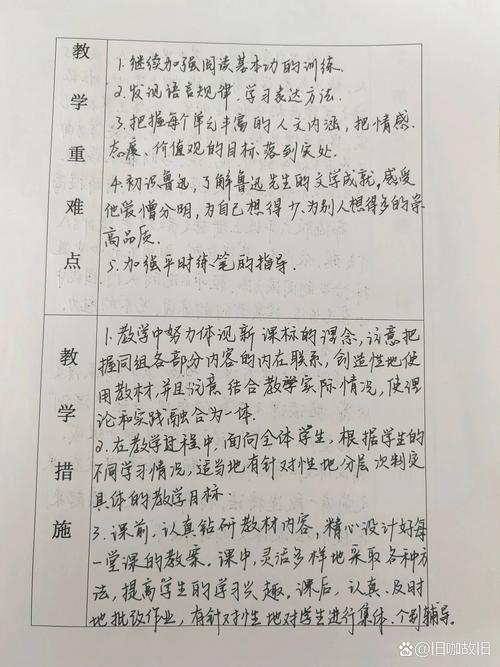 教学重难点
1.继续加强阅读基本功的训练.
2.发现语言规律.学习表达方法.
3.把握每个单元丰富的人文内涵,把情感.
态度、价值观的目标落到实处.
4.初识鲁迅,了解鲁迅先生的文学成就,感受
他爱憎分明,为自己想得少、为别人想得多的崇
高品质.
5.加强平时练笔的指导.
教学措施
1.教学中努力体现新课标的理念,注意把
握同组各部分内容的内在联系,创造性地使
用教材,并且注意结合教学实际情况,使理
论和实践融合为一体.
2.在教学过程中,面向全体学生,根据学生的
不同学习情况,适当地有针对性地分层次制定
具体的教学目标.
3.课前,认真钻研教材内容,精心设计好每
一堂课的教案。课中,灵活多样地采取各种方
法,提高学生的学习兴趣。课后,认真、及时
地批改作业,有针对性地对学生进行集体、个别辅导。
旧咖故旧